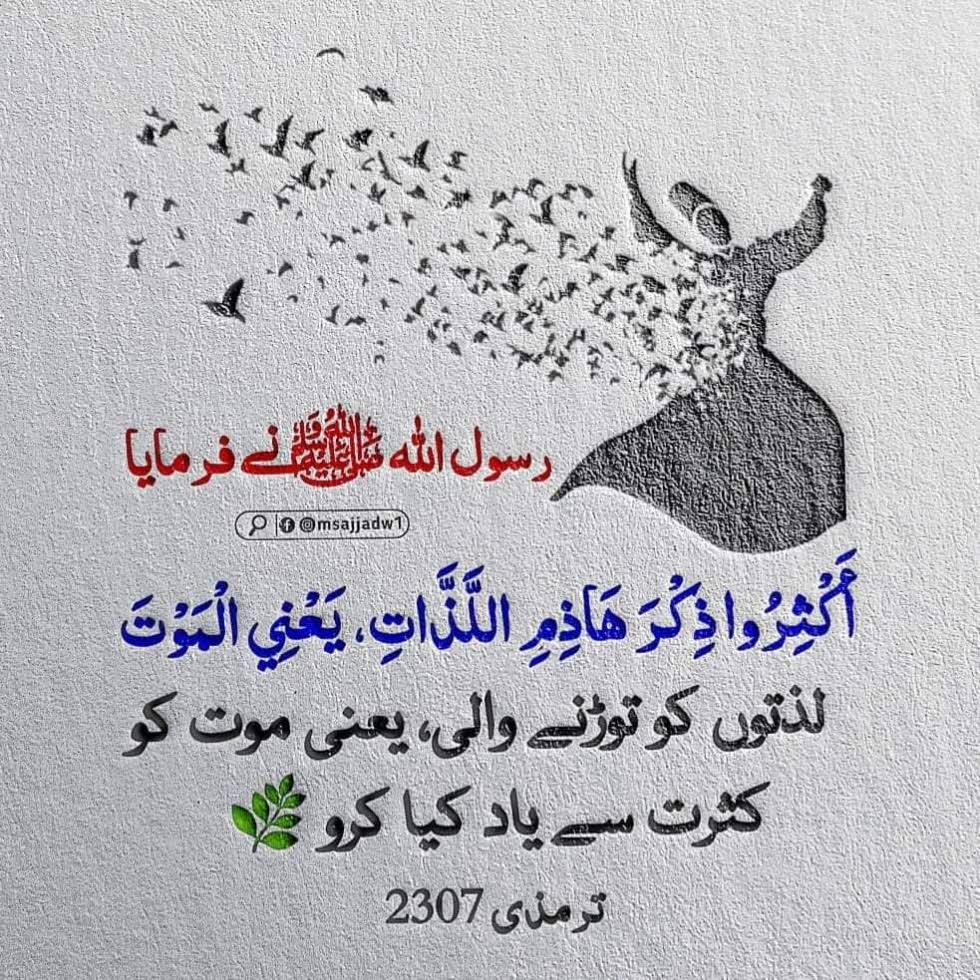 رسول اللہ ﷺ نے فرمایا
@msajjadw1
أَكْثِرُوا ذِكْرَ هَاذِمِ اللَّذَّاتِ، يَعْنِي الْمَوْتَ
لذتوں کو توڑنے والی، یعنی موت کو
کثرت سے یاد کیا کرو
ترمذی 2307